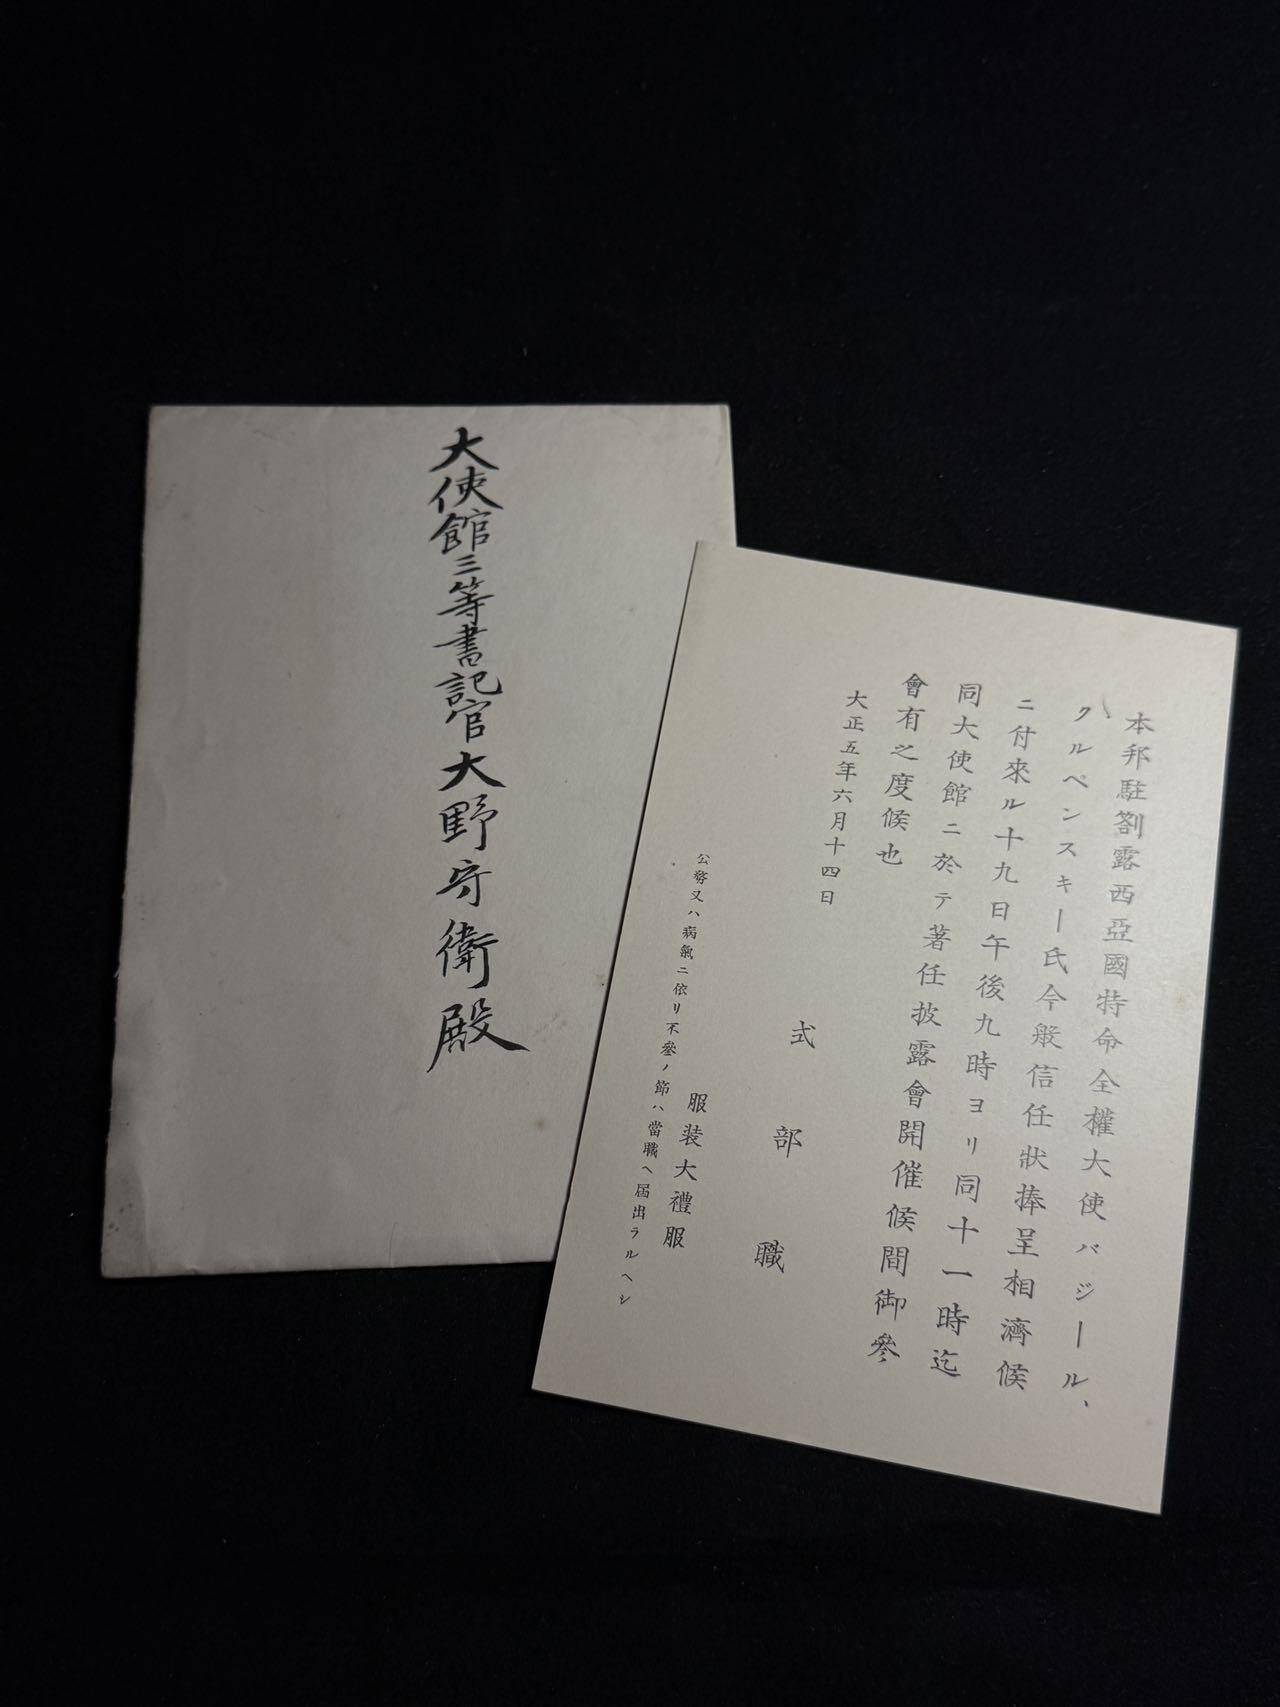 大使館三等書記官大野守衛殿
本邦駐劄露西亞國特命全權大使バジール、
クルペンスキー氏今般信任狀捧呈相濟候
ニ付來ル十九日午後九時ヨリ同十一時迄
同大使館ニ於テ著任披露會開催候間御參
會有之度候也
大正五年六月十四日
式部職
服装大禮服
公務又ハ病氣ニ依リ不參ノ節ハ當職ヘ届出ラルヘシ